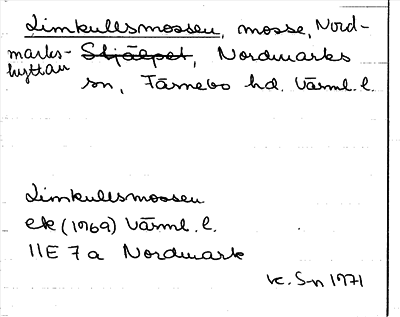 Limkullsmossen, mosse, Nord-
marks- Skjälpet, Nordmarks
hyttan
sn, Färnebo hd. Värml. l.
Limkullsmossen
ek (1969) Värml. l.
11E 7a Nordmark
K. S-n 1971